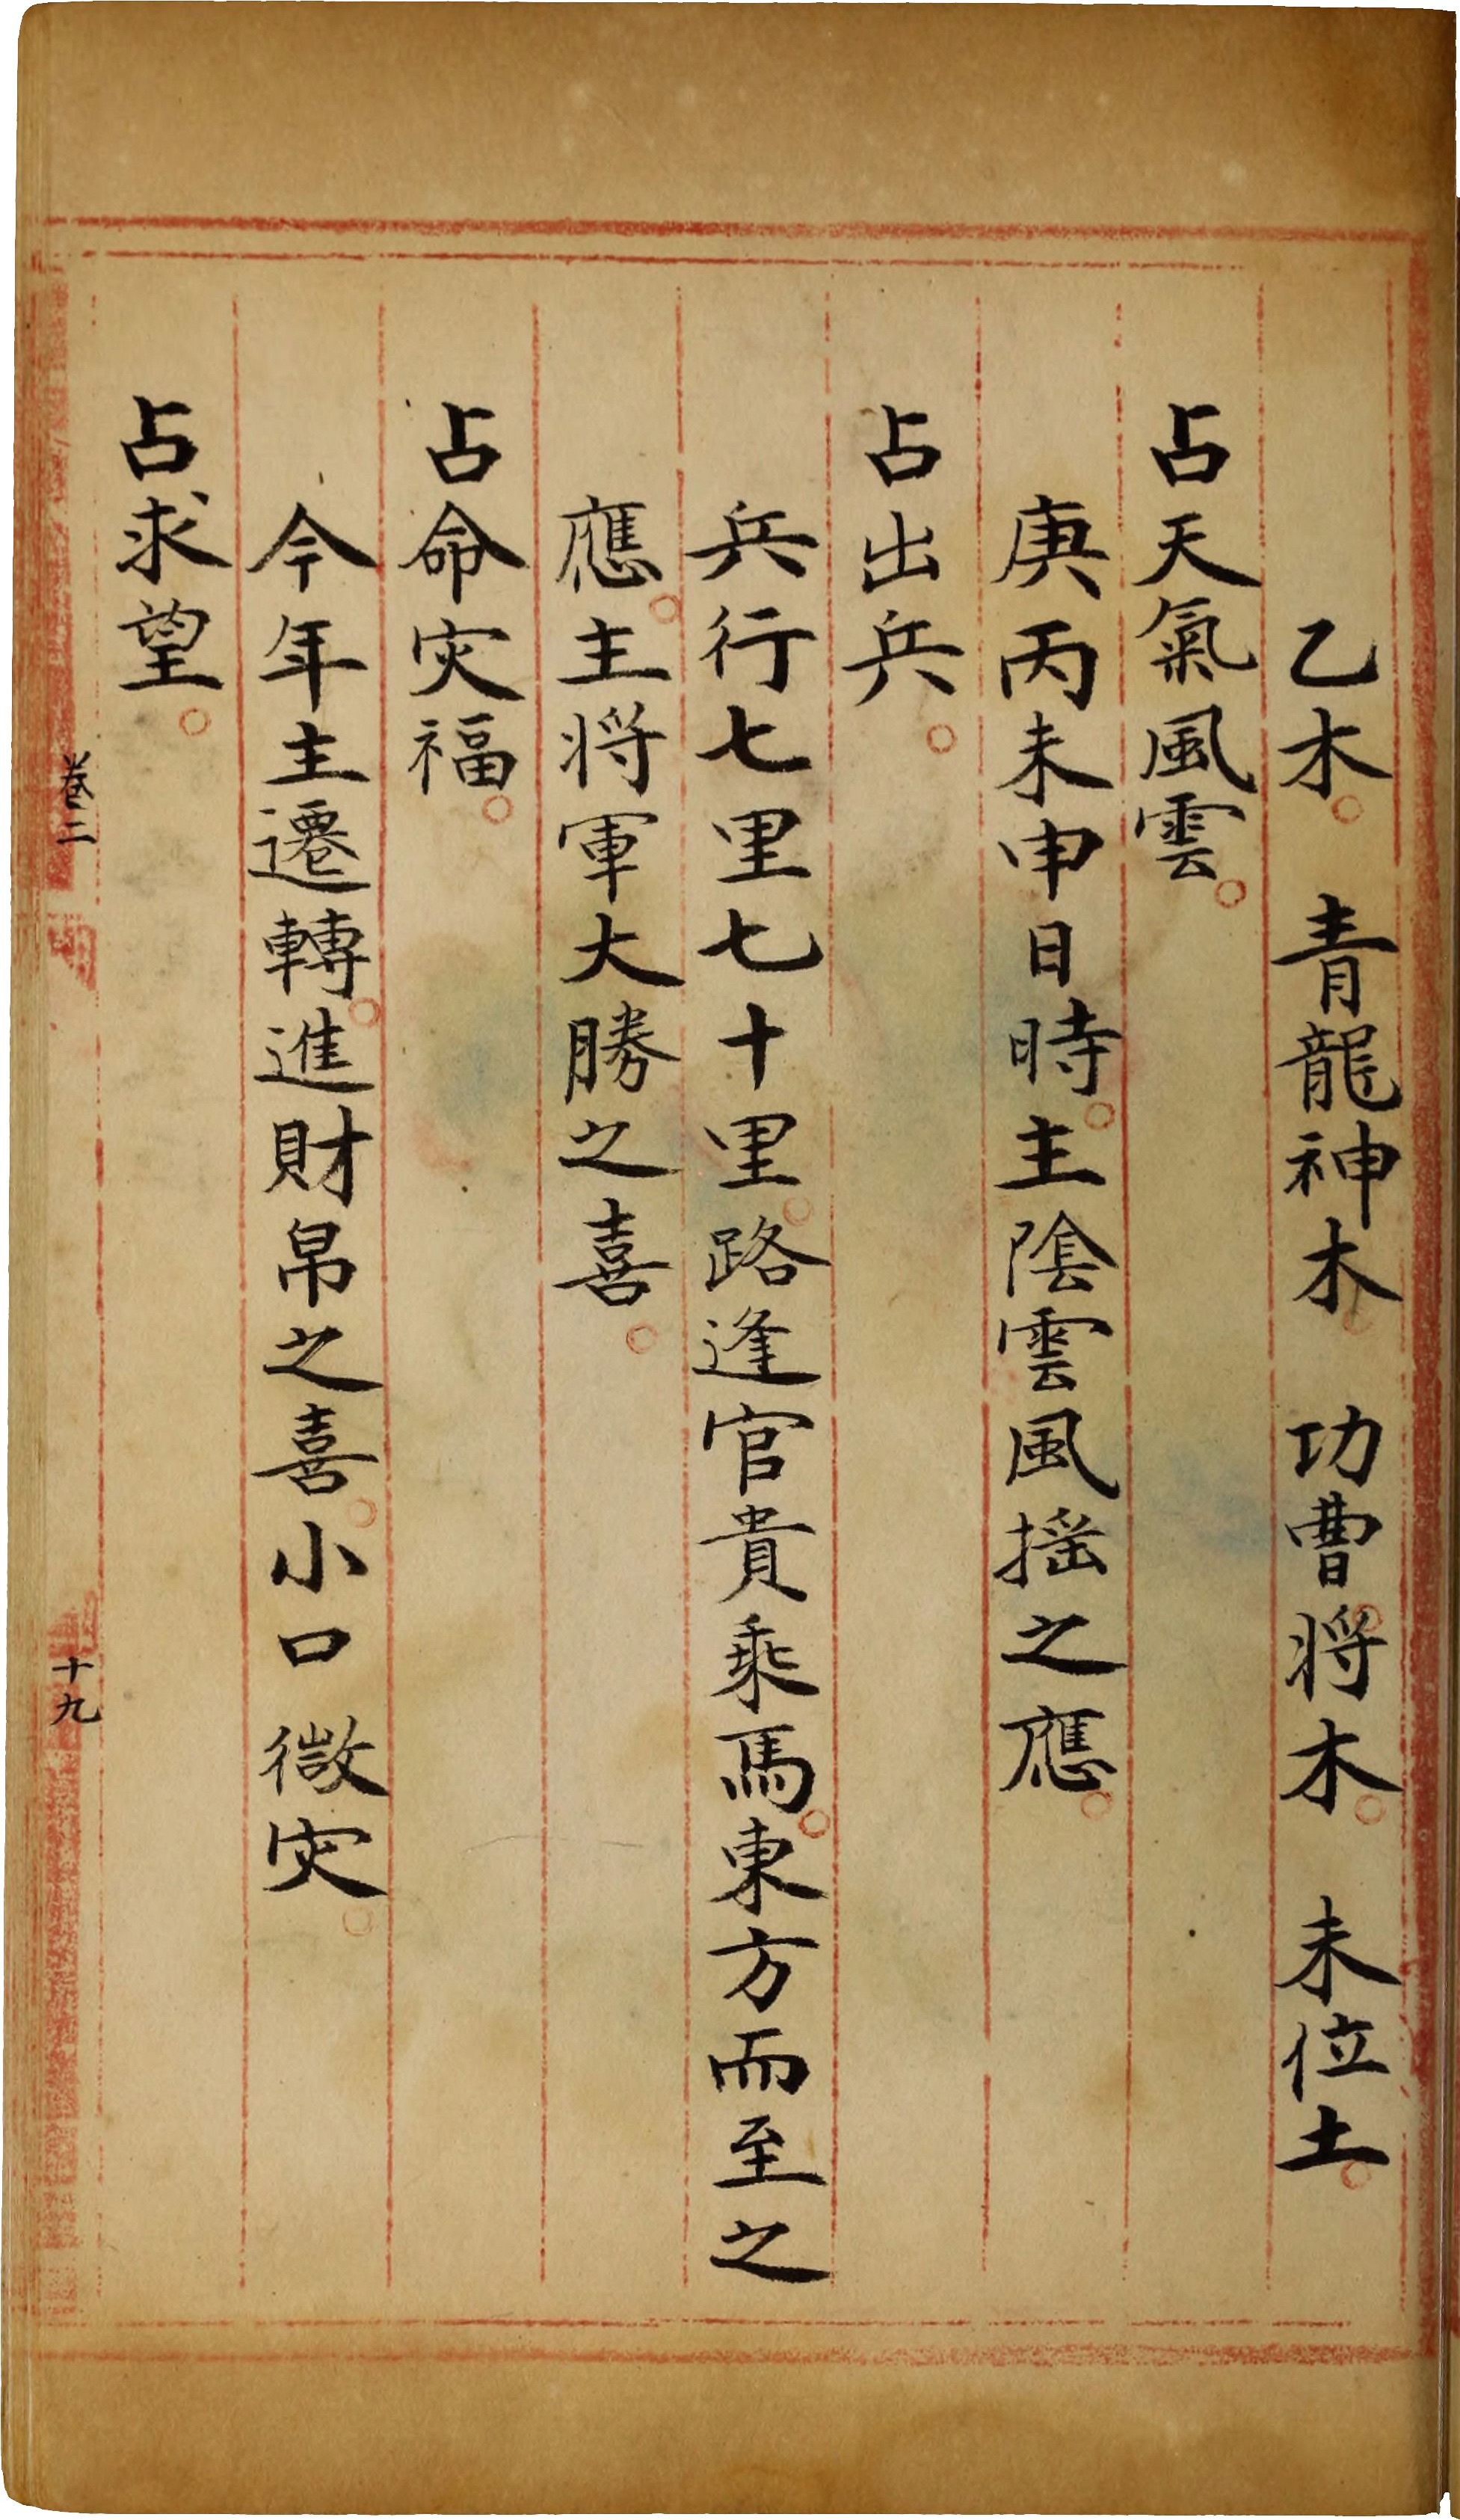 乙木。　青龍神木。　功曹将木。　未位土。
占天氣風雲。
庚丙未申日時。主陰雲風搖之應。
占出兵。
兵行七里七十里。路逢官貴乘馬。東方而至之
應。主将軍大勝之喜。
占命灾福。
今年主遷轉。進財帛之喜。小口微灾。
占求望。
卷二
十九